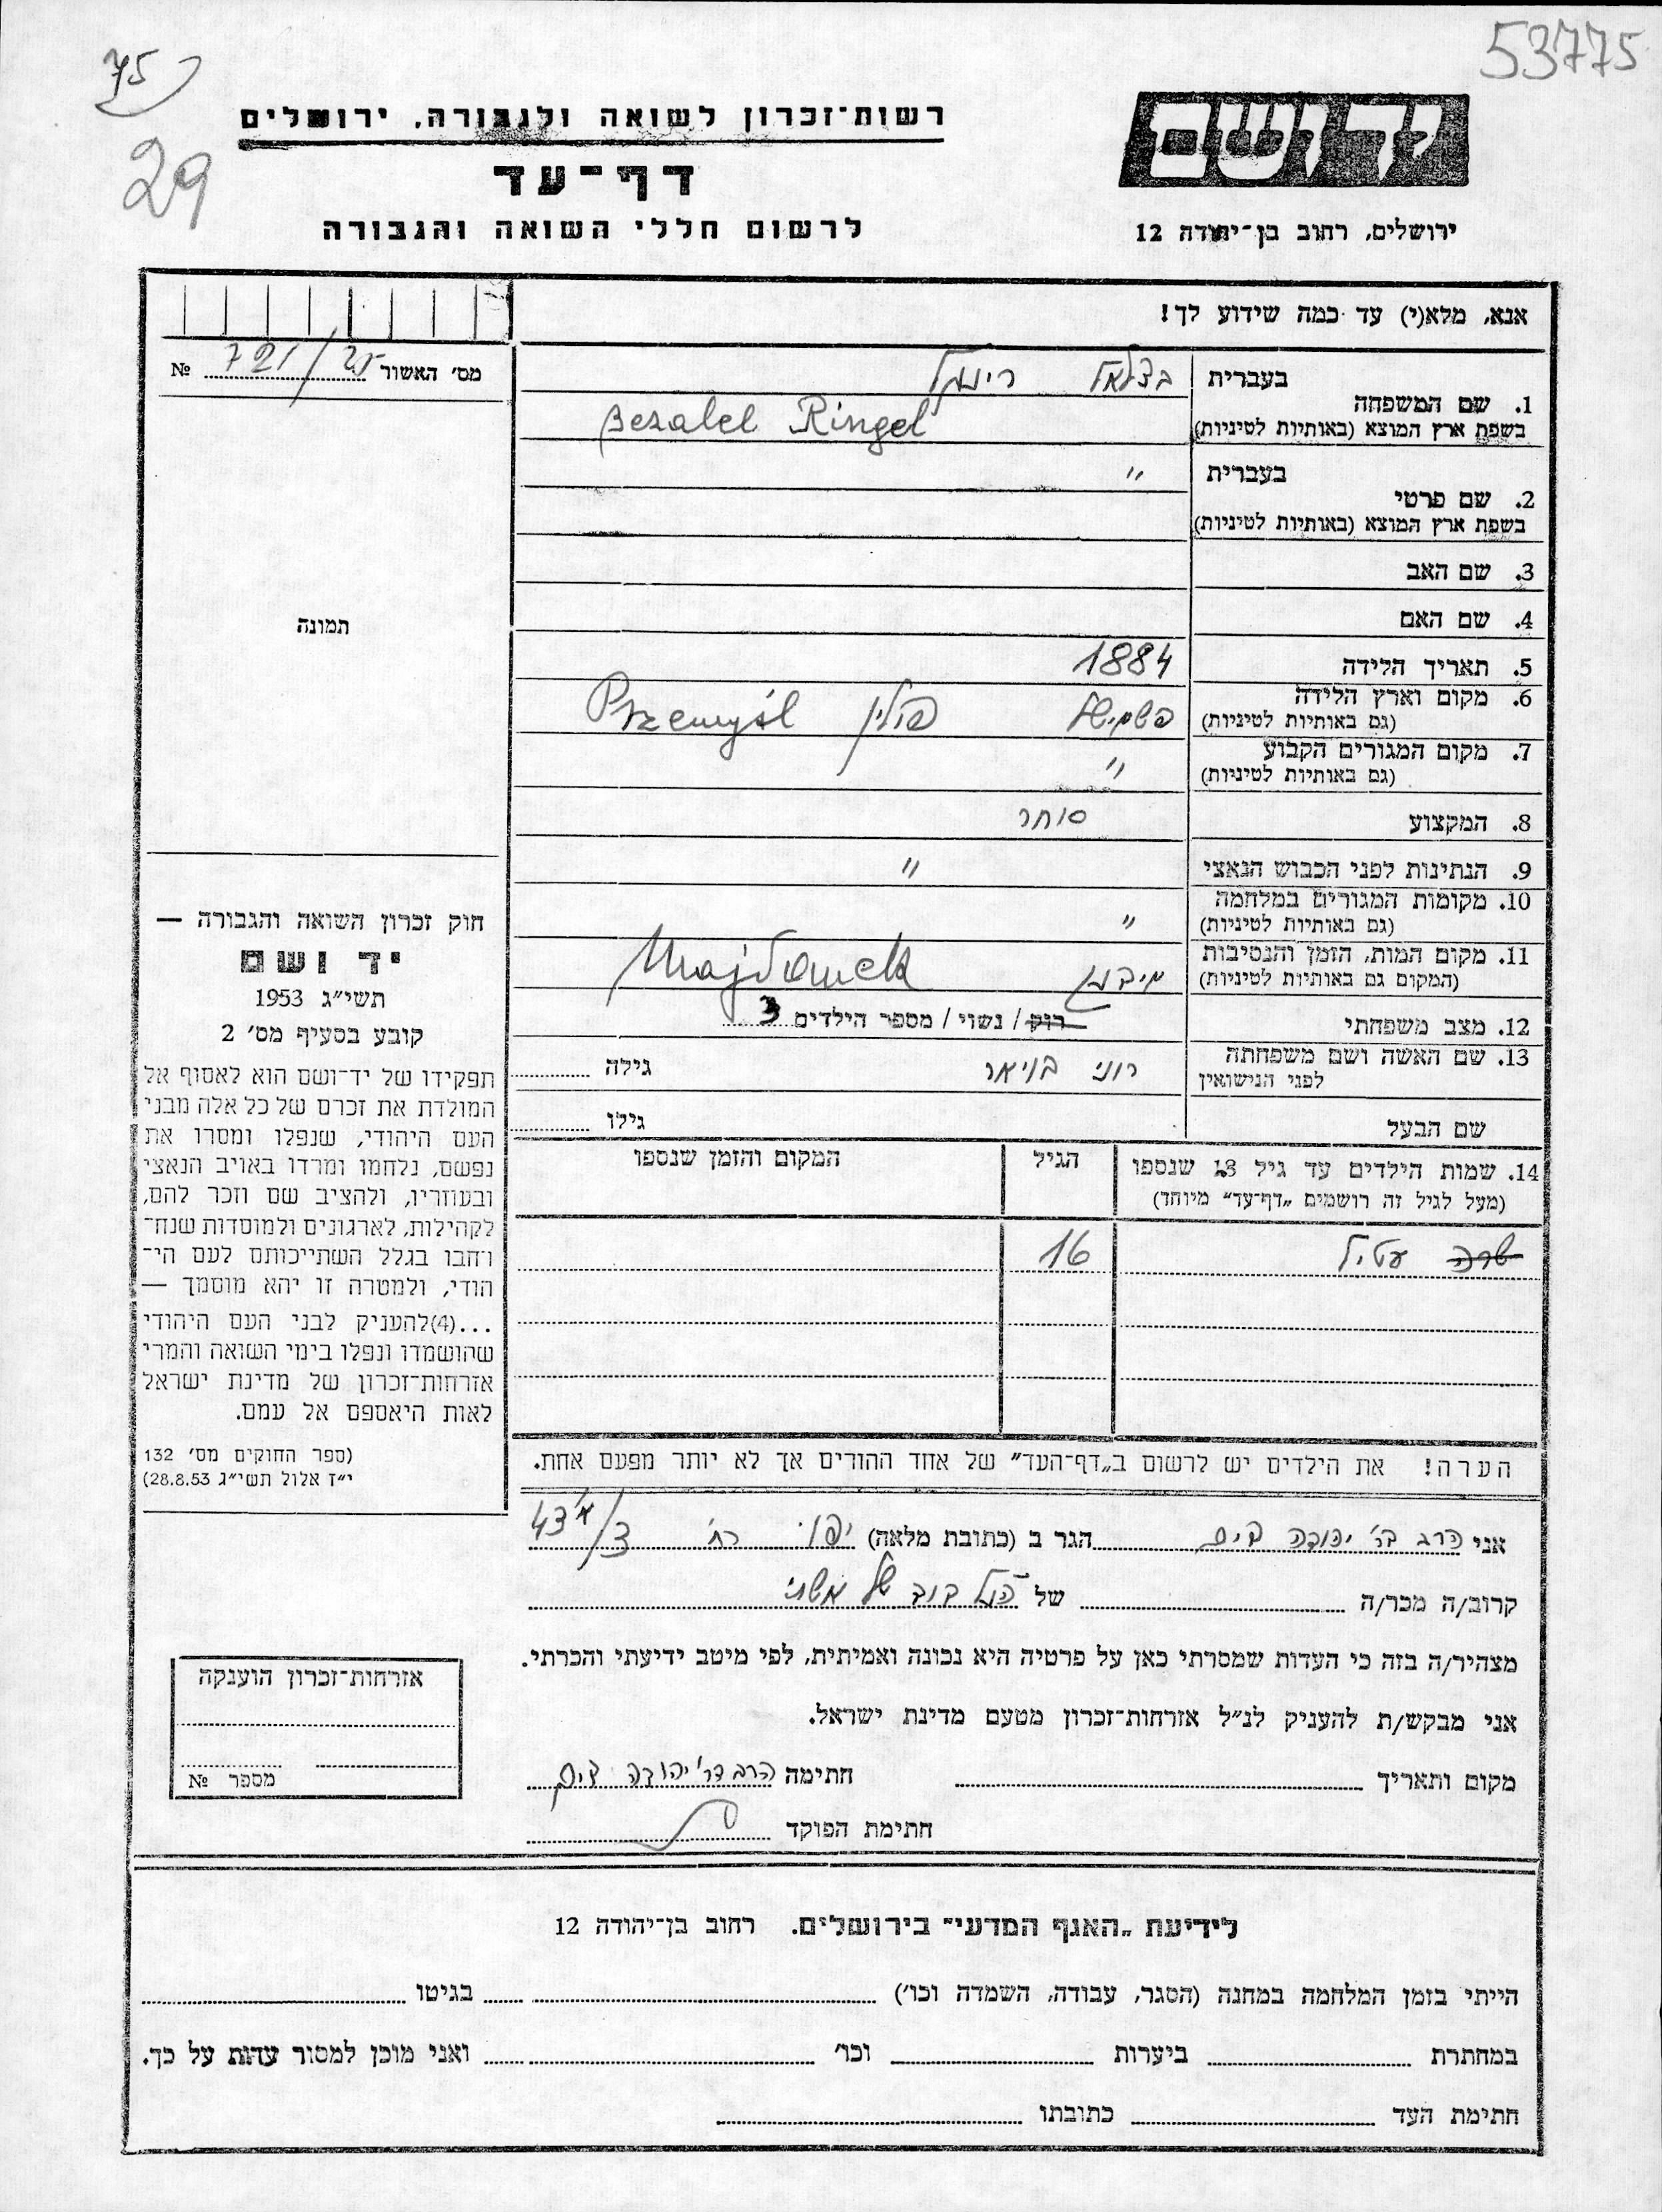 53775
75
29
ידושם
ירושלים, רחוב בן־יהודה 12
רשות־זכרון לשואה ולגבורה, ירושלים
דף־עד
לרשום חללי השואה והגבורה
אנא, מלא(י) עד כמה שידוע לך!
מס׳ האשור 721/25 №
תמונה
1. שם המשפחה
בעברית בצלאל רינגל
בשפת ארץ המוצא (באותיות לטיניות) Bezalel Ringel
2. שם פרטי
בעברית "
בשפת ארץ המוצא (באותיות לטיניות)
3. שם האב
4. שם האם
5. תאריך הלידה 1884
6. מקום וארץ הלידה פשמישל פולין Przemyśl
(גם באותיות לטיניות)
7. מקום המגורים הקבוע "
(גם באותיות לטיניות)
8. המקצוע סוחר
9. הנתינות לפני הכבוש הנאצי "
10. מקומות המגורים במלחמה "
(גם באותיות לטיניות)
11. מקום המות, הזמן והנסיבות Majdanek
(המקום גם באותיות לטיניות)
12. מצב משפחתי רוק / נשוי / מספר הילדים 3
13. שם האשה ושם משפחתה רוני גילה
לפני הנישואין
שם הבעל גילו
14. שמות הילדים עד גיל 18 שנספו הגיל המקום והזמן שנספו
(מעל לגיל זה רושמים „דף־עד״ מיוחד)
שרה 16
הערה! את הילדים יש לרשום ב„דף־העד״ של אחד ההורים אך לא יותר מפעם אחת.
חוק זכרון השואה והגבורה —
יד ושם
תשי״ג 1953
קובע בסעיף מס׳ 2
תפקידו של יד־ושם הוא לאסוף אל
המולדת את זכרם של כל אלה מבני
העם היהודי, שנפלו ומסרו את
נפשם, נלחמו ומרדו באויב הנאצי
ובעוזריו, ולהציב שם וזכר להם,
לקהילות, לארגונים ולמוסדות שנח־
רחבו בגלל השתייכותם לעם הי־
הודי, ולמטרה זו יהא מוסמך —
...(4)להעניק לבני העם היהודי
שהושמדו ונפלו בימי השואה והמרי
אזרחות־זכרון של מדינת ישראל
לאות היאספם אל עמם.
(ספר החוקים מס׳ 132
י״ז אלול תשי״ג 28.8.53)
אני הרב דר׳ יהודה הגר ב (כתובת מלאה) יפו רח׳ 3/43 א׳
קרוב/ה מכר/ה של
מצהיר/ה בזה כי העדות שמסרתי כאן על פרטיה היא נכונה ואמיתית, לפי מיטב ידיעתי והכרתי.
אני מבקש/ת להעניק לנ״ל אזרחות־זכרון מטעם מדינת ישראל.
מקום ותאריך חתימה הרב דר׳ יהודה
חתימת הפוקד
אזרחות־זכרון הוענקה
מספר №
לידיעת „האגף המדעי״ בירושלים. רחוב בן־יהודה 12
הייתי בזמן המלחמה במחנה (הסגר, עבודה, השמדה וכו׳) בגיטו
במחתרת ביערות וכו׳ ואני מוכן למסור עדות על כך.
חתימת העד כתובתו